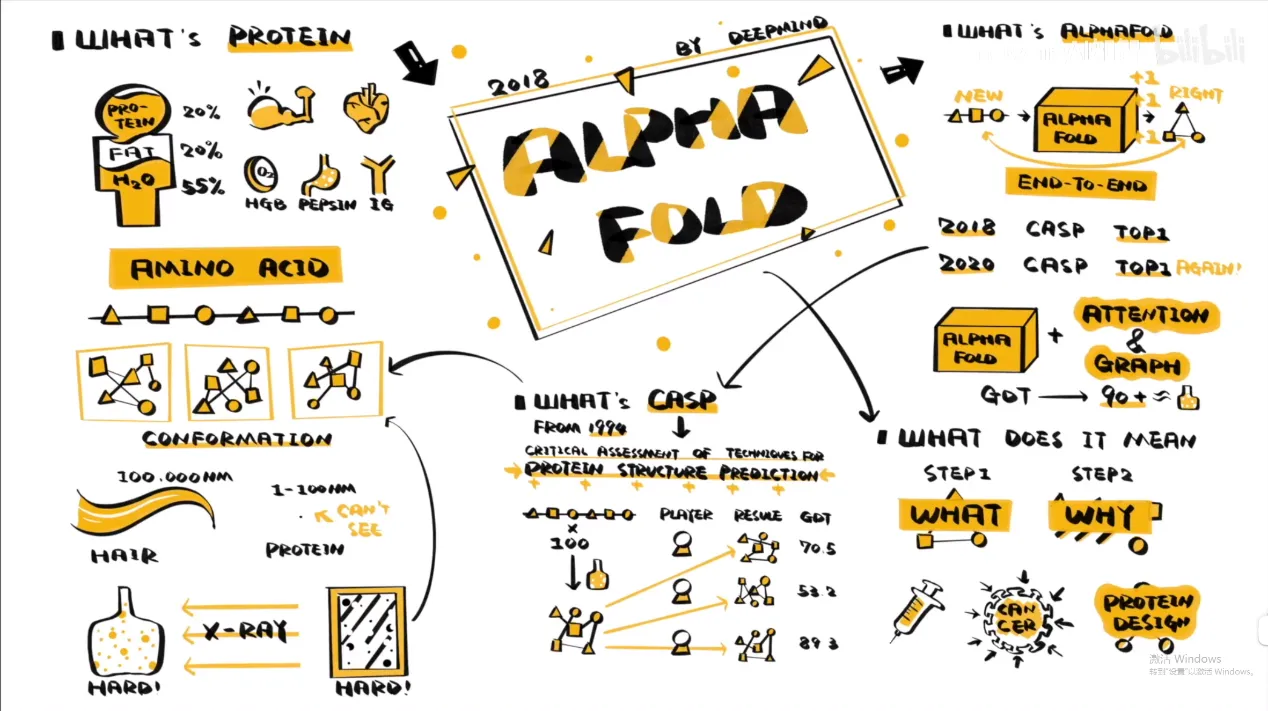 WHAT's PROTEIN
PRO-
TEIN
20%
FAT
20%
H2O
55%
O2
HGB PEPSIN IG
AMINO ACID
CONFORMATION
100.000NM
HAIR
1-100NM
CAN'T
SEE
PROTEIN
X-RAY
HARD!
HARD!
2018
BY DEEPMIND
ALPHA
FOLD
WHAT's CASP
FROM 1994
CRITICAL ASSESSMENT OF TECHNIQUES FOR
PROTEIN STRUCTURE PREDICTION
×
100
PLAYER RESULE GDT
70.5
53.2
89.3
WHAT's ALPHAFOLD
bilibili
NEW
ALPHA
FOLD
+1
+1
+1
RIGHT
END-TO-END
2018 CASP TOP1
2020 CASP TOP1 AGAIN!
ALPHA
FOLD
+
ATTENTION
&
GRAPH
GDT → 90+ ≈
WHAT DOES IT MEAN
STEP1 STEP2
WHAT WHY
CAN
CER
PROTEIN
DESIGN
激活 Windows
转到"设置"以激活 Windows。